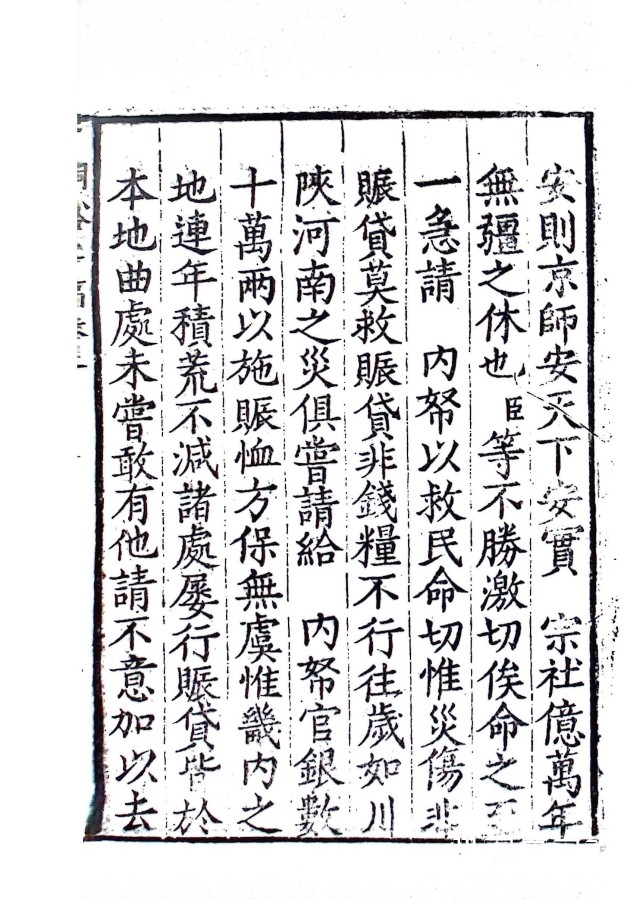 安則京師安天下安實　宗社億萬年
無疆之休也臣等不勝激切俟命之至
一急請　內帑以救民命切惟災傷非
賑貸莫救賑貸非錢糧不行往歲如川
陝河南之災俱嘗請給　內帑官銀數
十萬兩以施賑恤方保無虞惟畿內之
地連年積荒不減諸處屢行賑貸皆於
本地曲處未嘗敢有他請不意加以去